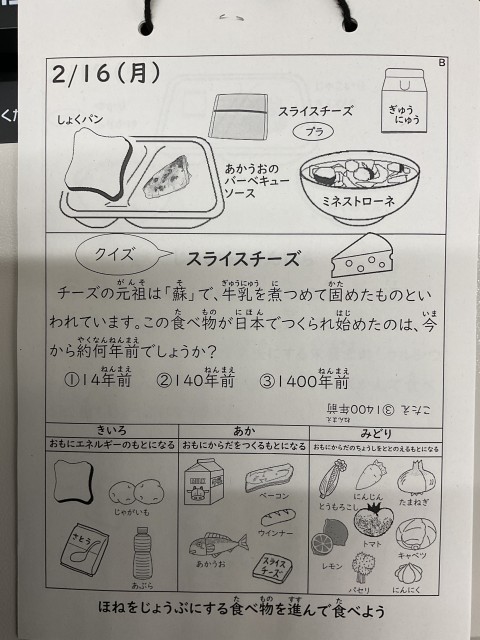 B
2/16(月)
しょくパン
スライスチーズ
プラ
ぎゅう
にゅう
あかうおの
バーベキュー
ソース
ミネストローネ
クイズ
スライスチーズ
チーズの元祖は「蘇」で、牛乳を煮つめて固めたものとい
われています。この食べ物が日本でつくられ始めたのは、今
から約何年前でしょうか?
①14年前 ②140年前 ③1400年前
こたえ ③1400年前
きいろ
おもにエネルギーのもとになる
じゃがいも
さとう
あぶら
あか
おもにからだをつくるもとになる
ベーコン
ウインナー
あかうお
スライス
チーズ
みどり
おもにからだのちょうしをととのえるもとになる
とうもろこし
にんじん
たまねぎ
トマト
キャベツ
レモン
パセリ
にんにく
ほねをじょうぶにする食べ物を進んで食べよう